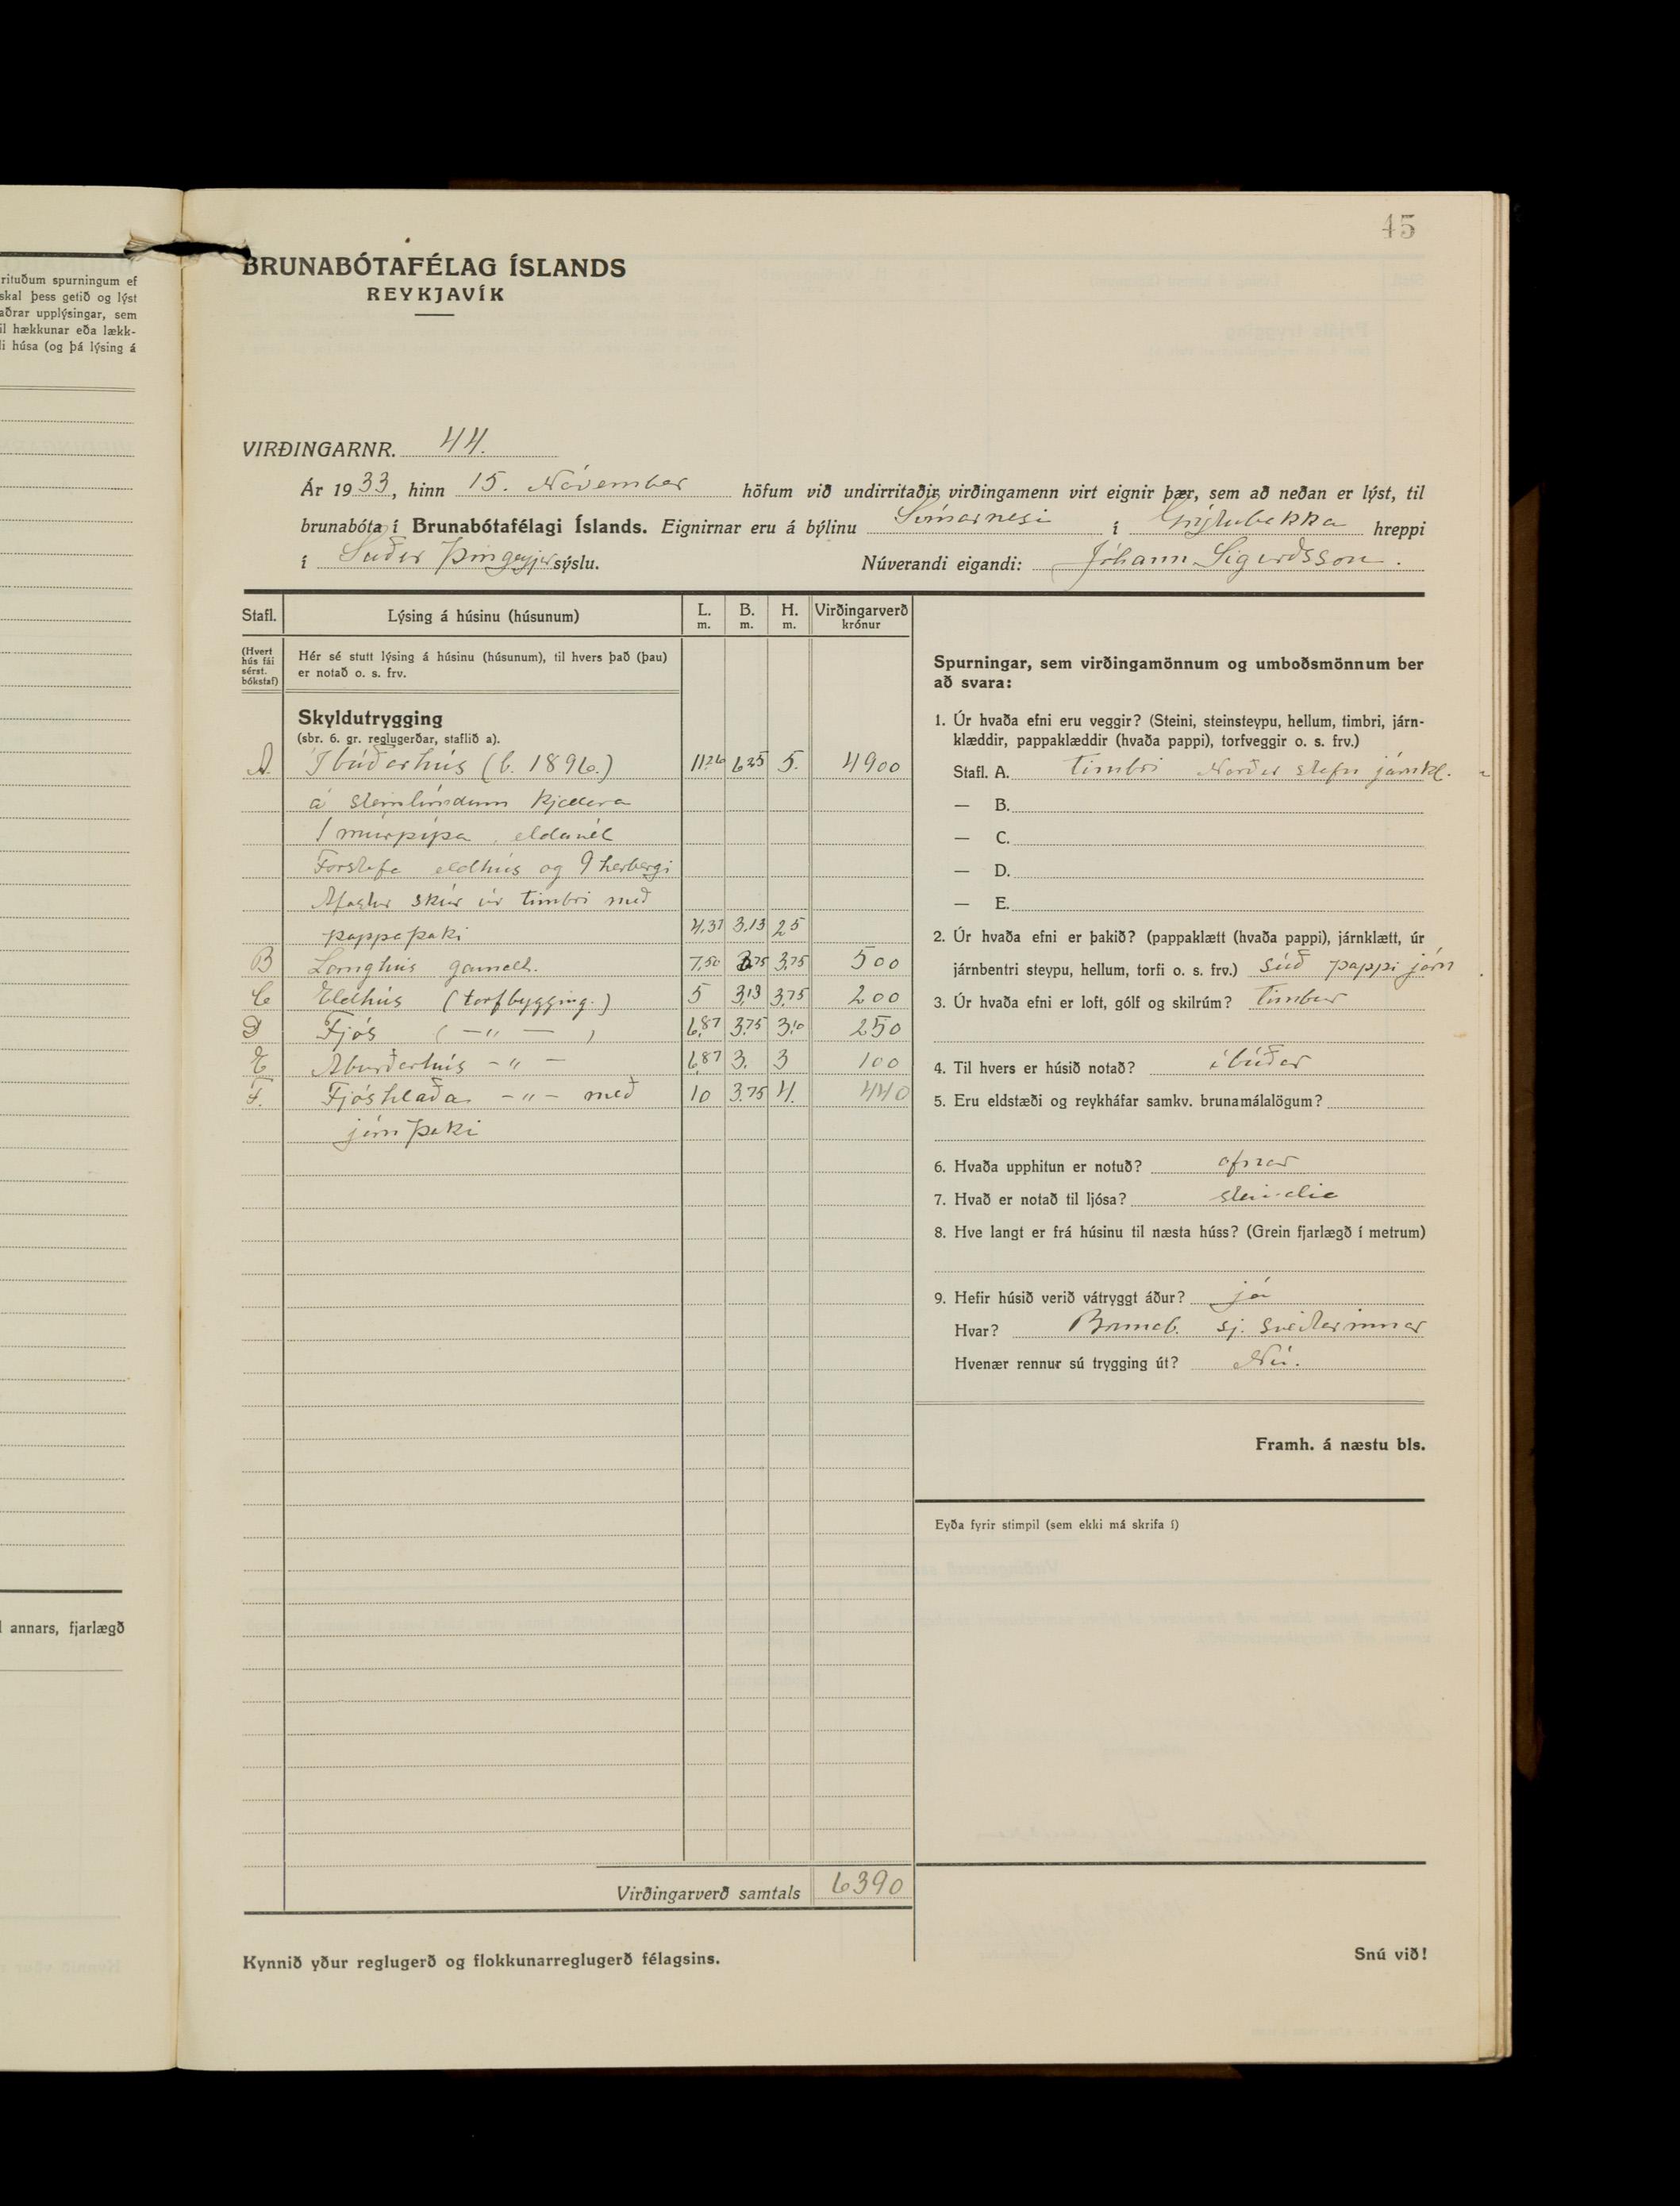 rituðum spurningum ef
skal þess getið og lýst
aðrar upplýsingar, sem
il hækkunar eða lækk-
li húsa (og þá lýsing á
annars, fjarlægð
45
BRUNABÓTAFÉLAG ÍSLANDS
REYKJAVÍK
VIRÐINGARNR. 44.
Ár 1933, hinn 15. November höfum við undirritaðir virðingamenn virt eignir þær, sem að neðan er lýst, til
brunabóta í Brunabótafélagi Íslands. Eignirnar eru á býlinu í Grýtubakka hreppi
í Suður Þingeyjarsýslu. Núverandi eigandi: Jóhann Sigurðsson.
Stafl. Lýsing á húsinu (húsunum) L. m. B. m. H. m. Virðingarverð krónur
(Hvert hús fái sérst. bókstaf) Hér sé stutt lýsing á húsinu (húsunum), til hvers það (þau)
er notað o. s. frv.
Skyldutrygging
(sbr. 6. gr. reglugerðar, staflið a).
A. Íbúðarhús (b. 1896.) 11.26 6.25 5. 4900
á steinlímdum kjallara
1 múrpípa, eldavél
Forstofa eldhús og 9 herbergi
Áfastur skúr úr timbri með
pappaþaki 4.37 3.13 2.5
B Langhús gamalt. 7.50 3.75 3.75 500
C Eldhús (torfbygging.) 5 3.13 3.75 200
D Fjós ( — " — ) 6.87 3.75 3.10 250
E Áburðarhús - " - 6.87 3. 3 100
F. Fjóshlaða - " - með 10 3.75 4. 440
járn þaki
Virðingarverð samtals 6390
Kynnið yður reglugerð og flokkunarreglugerð félagsins.
Spurningar, sem virðingamönnum og umboðsmönnum ber
að svara:
1. Úr hvaða efni eru veggir? (Steini, steinsteypu, hellum, timbri, járn-
klæddir, pappaklæddir (hvaða pappi), torfveggir o. s. frv.)
Stafl. A. timbri Norður stafn járnkl.
— B.
— C.
— D.
— E.
2. Úr hvaða efni er þakið? (pappaklætt (hvaða pappi), járnklætt, úr
járnbentri steypu, hellum, torfi o. s. frv.) súð pappi járn
3. Úr hvaða efni er loft, gólf og skilrúm? Timbur
4. Til hvers er húsið notað? íbúðar
5. Eru eldstæði og reykháfar samkv. brunamálalögum?
6. Hvaða upphitun er notuð? ofnar
7. Hvað er notað til ljósa?
8. Hve langt er frá húsinu til næsta húss? (Grein fjarlægð í metrum)
9. Hefir húsið verið vátryggt áður? já
Hvar? Brunab. sj. sveitarinnar
Hvenær rennur sú trygging út? Nú.
Framh. á næstu bls.
Eyða fyrir stimpil (sem ekki má skrifa í)
Snú við!